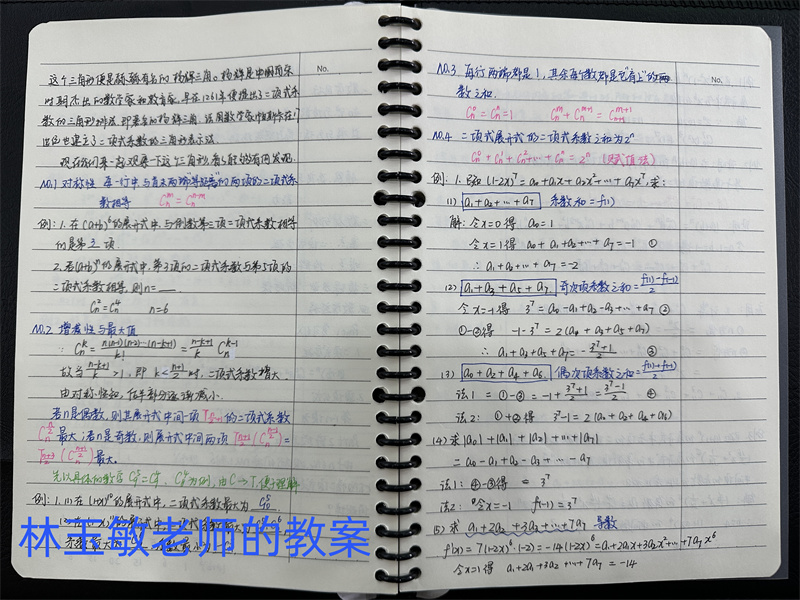 No.
这个三角形便是颇颇有名的杨辉三角。杨辉是中国南宋
时期杰出的数学家和数学教育家,早在1261年便提出了二项式系
数的三角形排法,即著名的杨辉三角。法国数学家帕斯卡在17
出色也建立了二项式系数的三角形表示法
现在我们来一起观察一下这个三角形,看看能够有何发现.
NO.1 对称性 每一行中与首末两端“等距离”的两项的二项式系
数相等 Cₙᵐ=Cₙⁿ⁻ᵐ
例:1.在(a+b)⁶的展开式中,与倒数第三项二项式系数相等
的是第三项
2.若(a+b)ⁿ的展开式中,第3项的二项式系数与第5项的
二项式系数相等,则n=
Cₙ²=Cₙ⁴ n=6
NO.2 增减性与最大值
∵ Cₙᵏ=n(n-1)(n-2)…(n-k+1)/k!=(n-k+1)/k Cₙᵏ⁻¹
故当(n-k+1)/k>1,即k<(n+1)/2时,二项式系数增大.
由对称性知,在后半部分逐渐减小.
若n是偶数,则其展开式中间一项的二项式系数
最大;若n是奇数,则展开式中间两项
最大.
例:1.(1)在(1+x)¹⁰的展开式中,二项式系数最大为C₁₀⁵
林玉敏老师的教案
NO.3 每行两端都是1,其余每个数都是它“肩上”的两
No.
数之和.
Cₙ⁰=Cₙⁿ=1 Cₙᵐ+Cₙᵐ⁺¹=Cₙ₊₁ᵐ⁺¹
NO.4 二项式展开式的二项式系数之和为2ⁿ
Cₙ⁰+Cₙ¹+Cₙ²+…+Cₙⁿ=2ⁿ (赋值法)
例:1.已知(1-2x)⁷=a₀+a₁x+a₂x²+…+a₇x⁷,求:
(1) a₁+a₂+…+a₇ 系数和=f(1)
解:令x=0得 a₀=1
令x=1得 a₀+a₁+a₂+…+a₇=-1 ①
∴a₁+a₂+…+a₇=-2
(2) a₁+a₃+a₅+a₇ 奇次项系数之和=(f(1)-f(-1))/2
令x=-1得 3⁷=a₀-a₁+a₂-a₃+…+a₇ ②
①-②得 -1-3⁷=2(a₁+a₃+a₅+a₇)
∴a₁+a₃+a₅+a₇=-(3⁷+1)/2 ③
(3) a₀+a₂+a₄+a₆ 偶次项系数之和=(f(1)+f(-1))/2
法1=①-③=-1+(3⁷+1)/2=(3⁷-1)/2 ④
法2:①+②得 3⁷-1=2(a₀+a₂+a₄+a₆)
(4)求|a₀|+|a₁|+|a₂|+…+|a₇|
=a₀-a₁+a₂-a₃+…-a₇
法1:④-③得 =3⁷
法2:令x=-1 f(-1)=3⁷
(5)求 a₁+2a₂+3a₃+…+7a₇ 导数
f'(x)=7(1-2x)⁶·(-2)=-14(1-2x)⁶=a₁+2a₂x+3a₃x²+…+7a₇x⁶
令x=1得 a₁+2a₂+3a₃+…+7a₇=-14